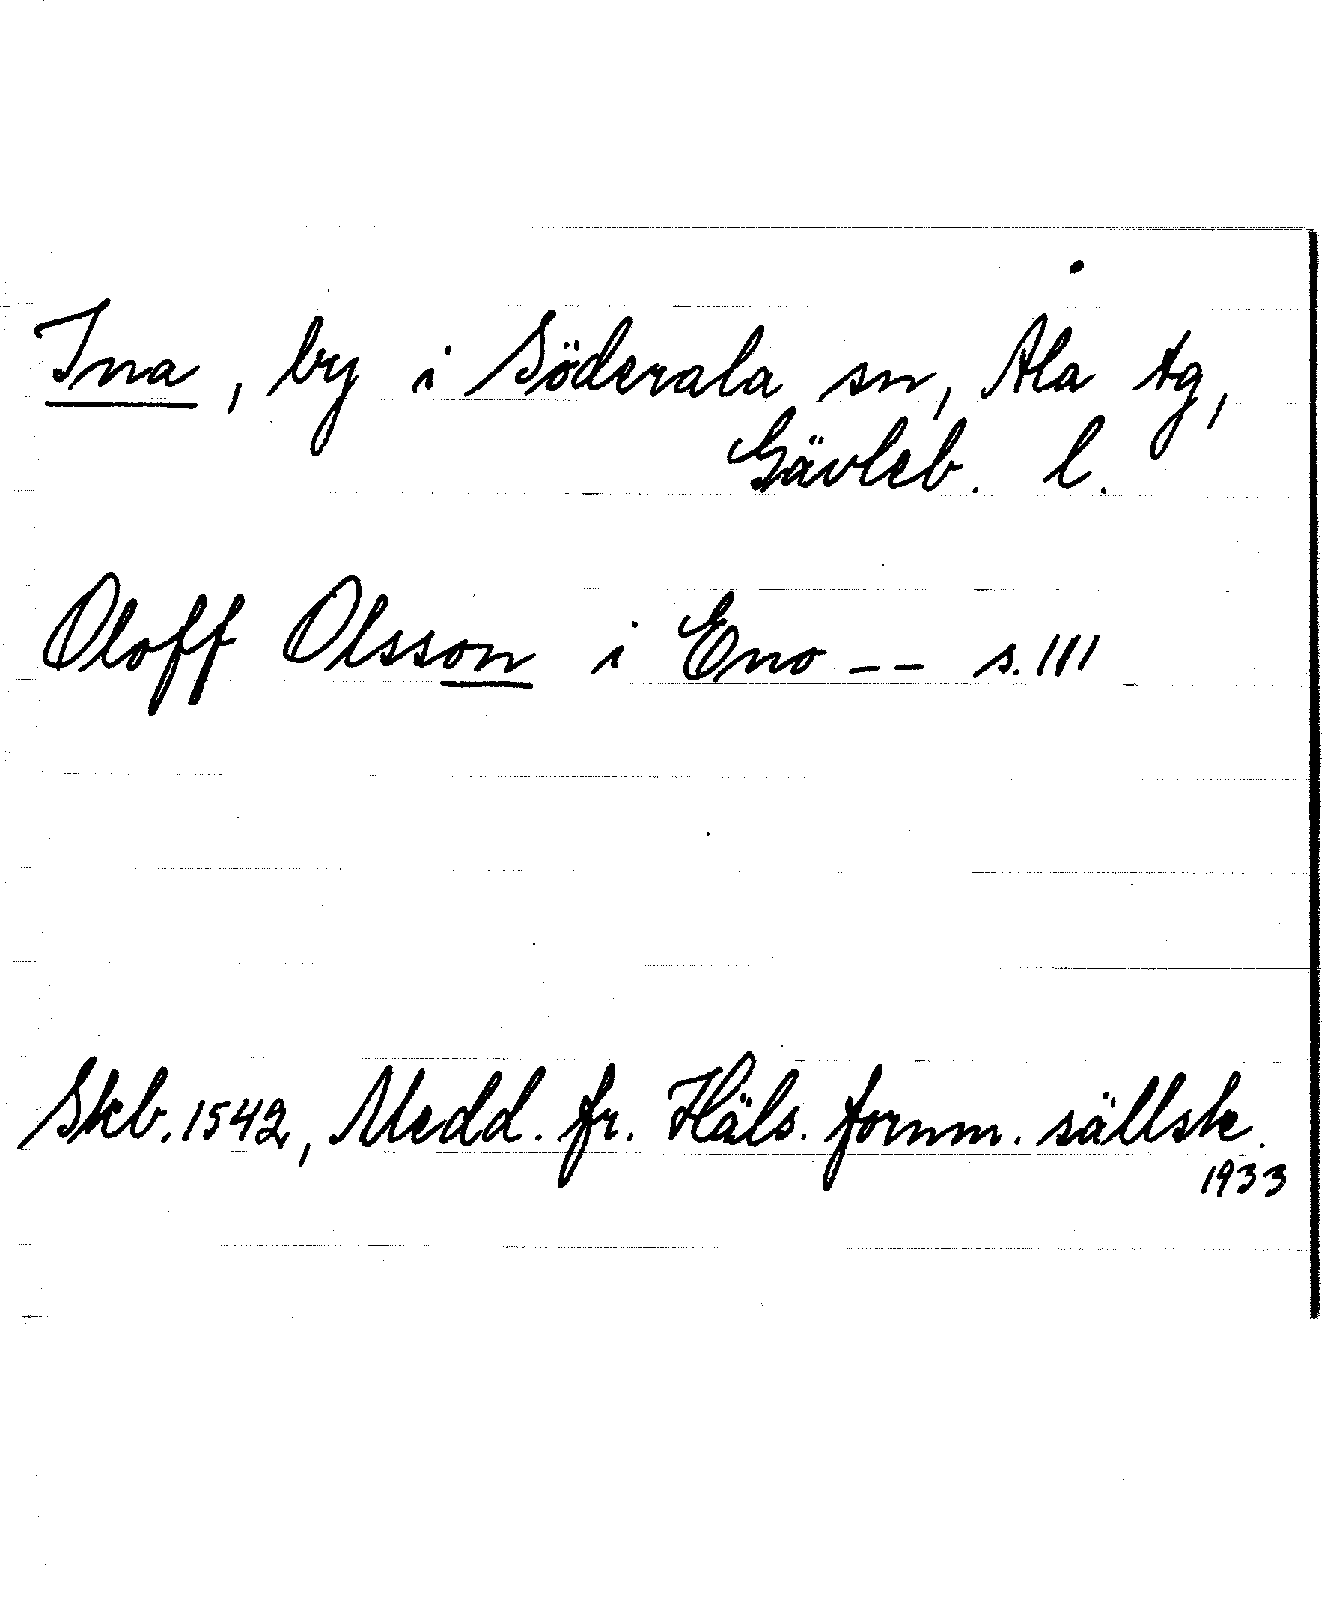 Ina, by i Söderala sn, Ala tg,
Gävleb. l.
Oloff Olsson i Eno -- s. 111
Skb. 1542, Medd. fr. Häls. fornm. sällsk.
1933